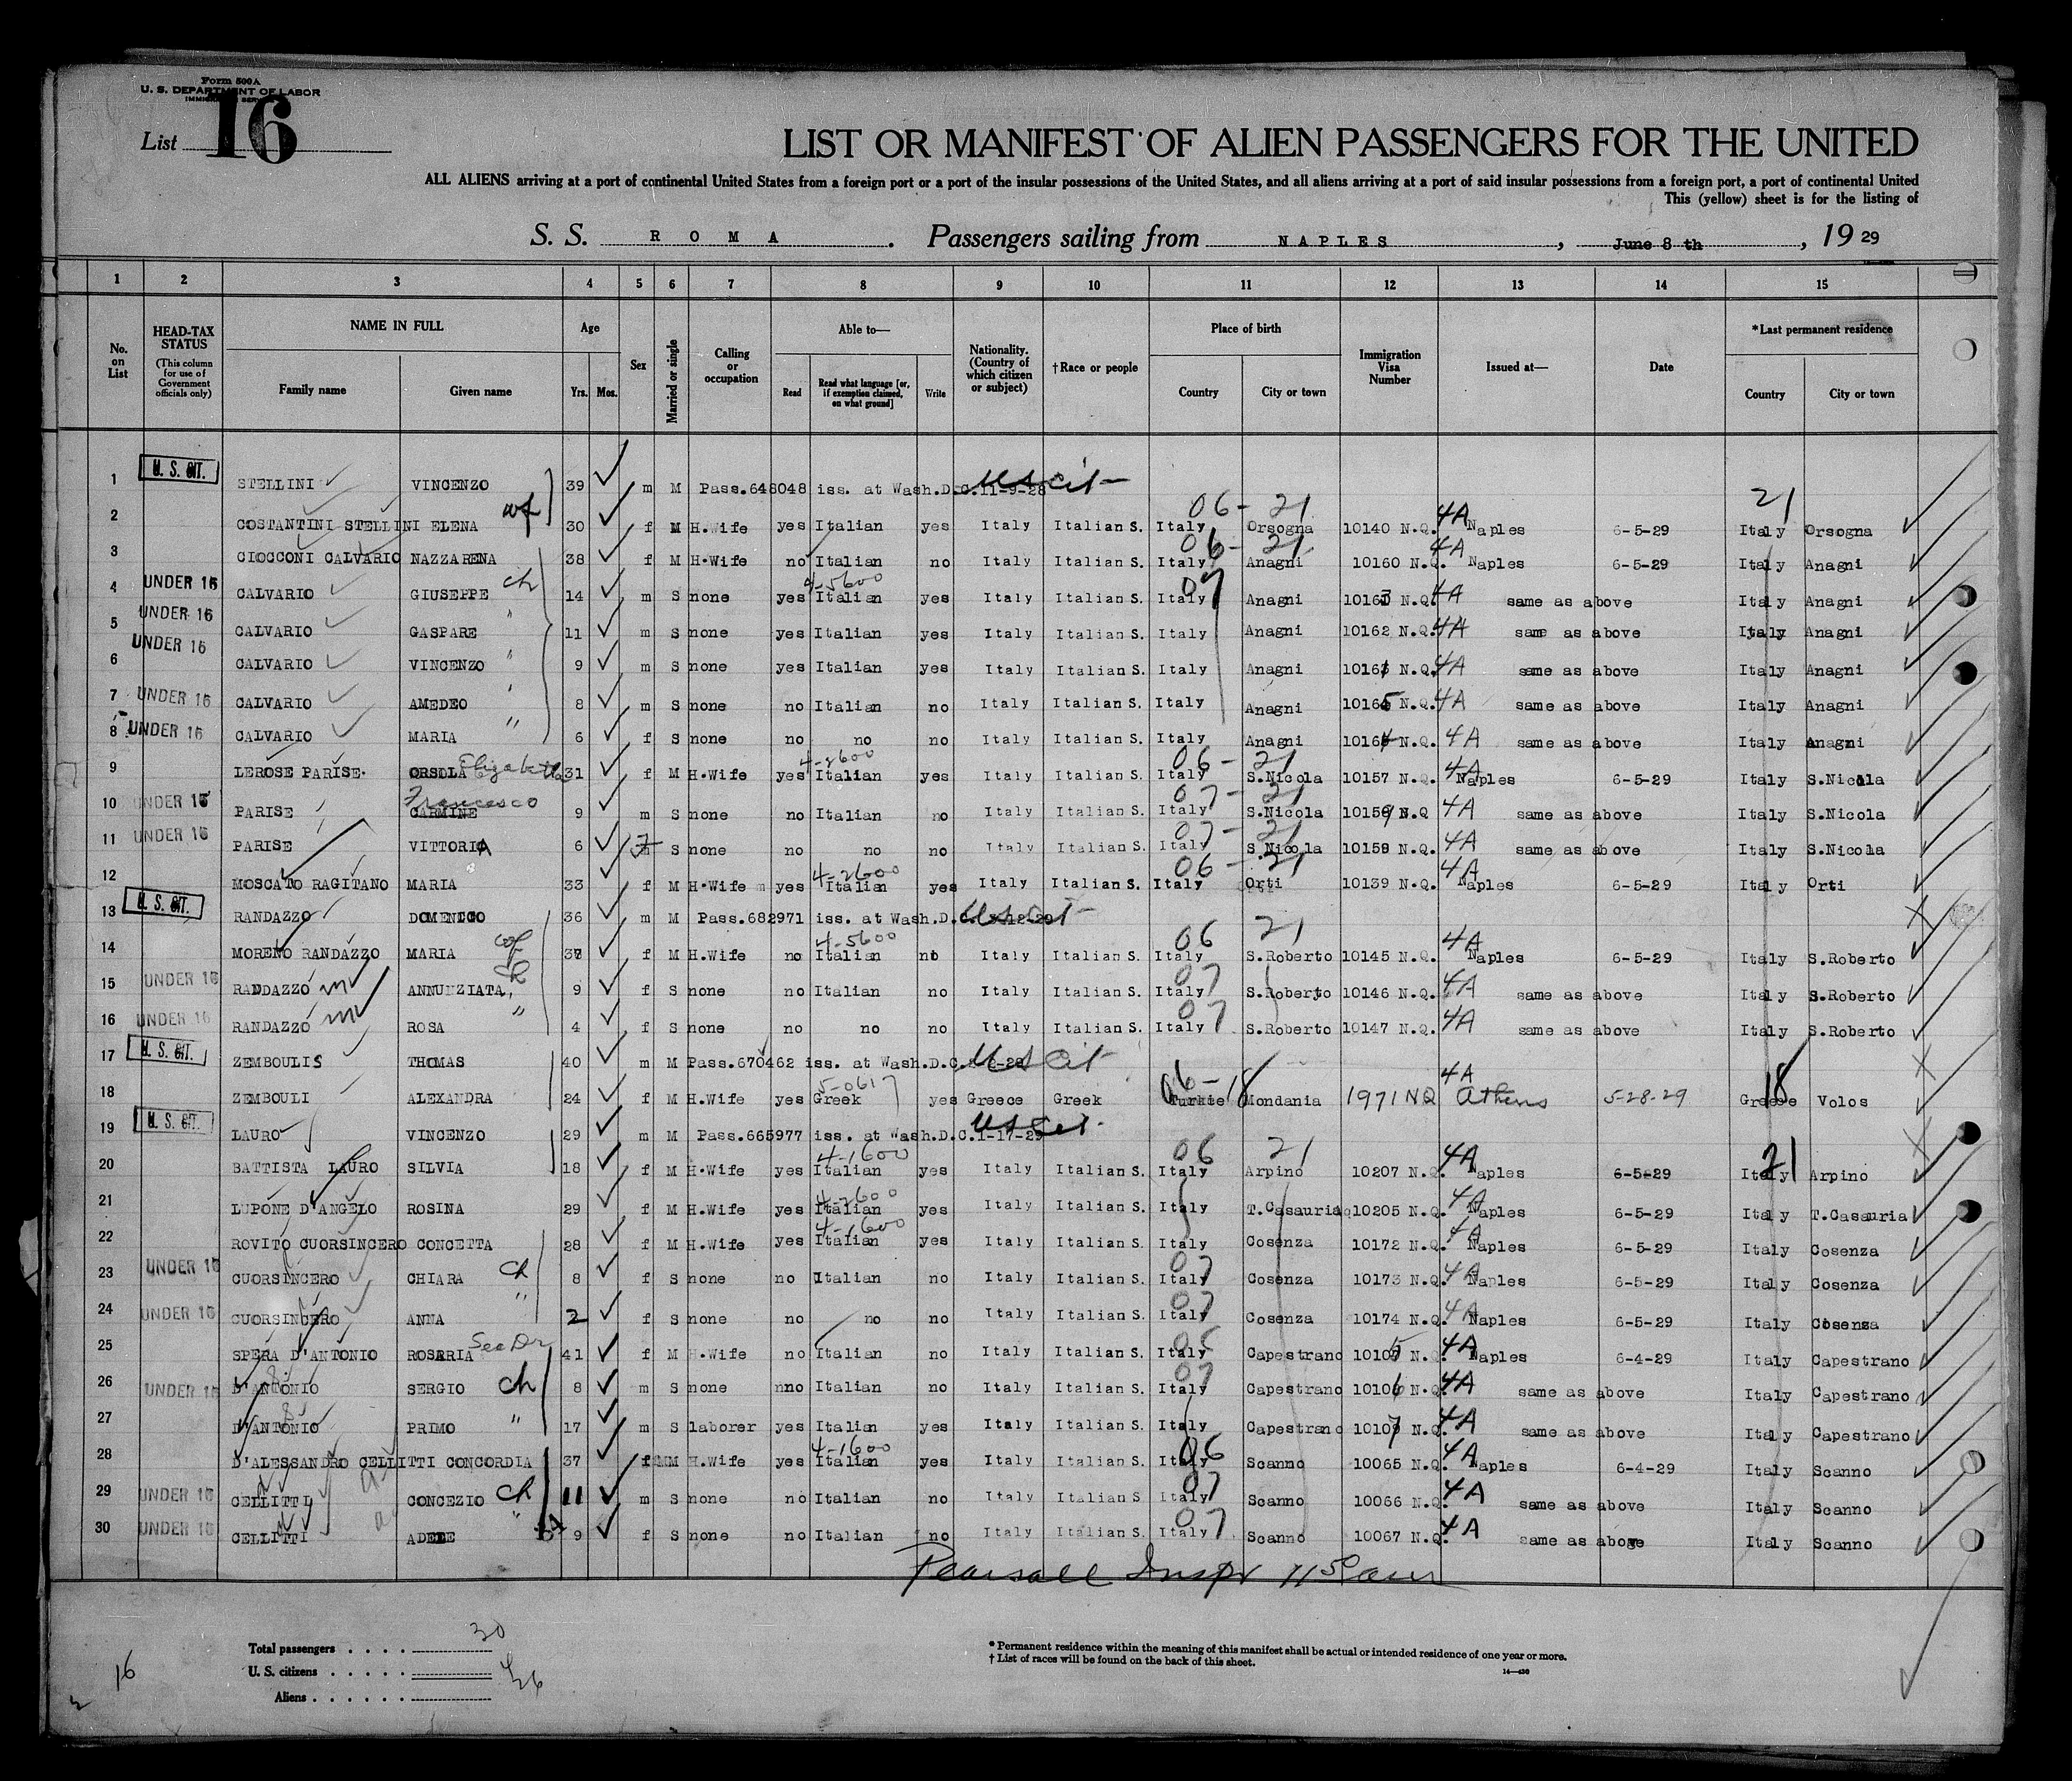 Form 500 A
U. S. DEPARTMENT OF LABOR
List 16
LIST OR MANIFEST OF ALIEN PASSENGERS FOR THE UNITED
ALL ALIENS arriving at a port of continental United States from a foreign port or a port of the insular possessions of the United States, and all aliens arriving at a port of said insular possessions from a foreign port, a port of continental United
This (yellow) sheet is for the listing of
S. S. ROMA. Passengers sailing from NAPLES, June 8 th, 19 29
1 2 3 4 5 6 7 8 9 10 11 12 13 14 15
No. on List HEAD-TAX STATUS (This column for use of Government officials only) NAME IN FULL Family name Given name Age Yrs. Mos. Sex Married or single Calling or occupation Able to— Read Read what language [or, if exemption claimed, on what ground] Write Nationality. (Country of which citizen or subject) †Race or people Place of birth Country City or town Immigration Visa Number Issued at— Date *Last permanent residence Country City or town
1 U. S. CIT. STELLINI VINCENZO 39 m M Pass.648048 iss. at Wash.D.C.11-9-28 US Cit 21
2 COSTANTINI STELLINI ELENA wf 30 f M H.Wife yes Italian yes Italy Italian S. Italy 06-21 Orsogna 10140 N.Q. 4A Naples 6-5-29 Italy Orsogna
3 CIOCCONI CALVARIO NAZZARENA 38 f M H.Wife no Italian no Italy Italian S. Italy 06-21 Anagni 10160 N.Q. 4A Naples 6-5-29 Italy Anagni
4 UNDER 16 CALVARIO GIUSEPPE ch 14 m S none yes 4-5600 Italian yes Italy Italian S. Italy 07 Anagni 10163 N.Q. 4A same as above Italy Anagni
5 UNDER 16 CALVARIO GASPARE " 11 m S none yes Italian yes Italy Italian S. Italy Anagni 10162 N.Q. 4A same as above Italy Anagni
6 UNDER 16 CALVARIO VINCENZO " 9 m S none yes Italian yes Italy Italian S. Italy Anagni 10161 N.Q. 4A same as above Italy Anagni
7 UNDER 16 CALVARIO AMEDEO " 8 m S none no Italian no Italy Italian S. Italy Anagni 10165 N.Q. 4A same as above Italy Anagni
8 UNDER 16 CALVARIO MARIA " 6 f S none no no no Italy Italian S. Italy Anagni 10164 N.Q. 4A same as above Italy Anagni
9 LEROSE PARISE ORSOLA Elizabetta 31 f M H.Wife yes 4-2600 Italian yes Italy Italian S. Italy 06-21 S.Nicola 10157 N.Q. 4A Naples 6-5-29 Italy S.Nicola
10 UNDER 16 PARISE CARMINE Francesco 9 m S none no Italian no Italy Italian S. Italy 07-21 S.Nicola 10159 N.Q. 4A same as above Italy S.Nicola
11 UNDER 16 PARISE VITTORIA 6 f S none no no no Italy Italian S. Italy 07-21 S.Nicola 10158 N.Q. 4A same as above Italy S.Nicola
12 MOSCATO RAGITANO MARIA 33 f M H.Wife yes 4-2600 Italian yes Italy Italian S. Italy 06-21 Orti 10139 N.Q. 4A Naples 6-5-29 Italy Orti
13 U. S. CIT. RANDAZZO DOMENICO 36 m M Pass.682971 iss. at Wash.D.C. US Cit
14 MORENO RANDAZZO MARIA wf f M H.Wife no 4-5600 Italian no Italy Italian S. Italy 06 21 S.Roberto 10145 N.Q. 4A Naples 6-5-29 Italy S.Roberto
15 UNDER 16 RANDAZZO ANNUNZIATA ch 9 f S none no Italian no Italy Italian S. Italy 07 S.Roberto 10146 N.Q. 4A same as above Italy S.Roberto
16 UNDER 16 RANDAZZO ROSA " 4 f S none no no no Italy Italian S. Italy 07 S.Roberto 10147 N.Q. 4A same as above Italy S.Roberto
17 U. S. CIT. ZEMBOULIS THOMAS 40 m M Pass.670462 iss. at Wash.D.C. US Cit
18 ZEMBOULI ALEXANDRA 24 f M H.Wife yes 5-061 Greek yes Greece Greek Turkie 06-18 Mondania 1971 NQ 4A Athens 5-28-29 Greece 18 Volos
19 U. S. CIT. LAURO VINCENZO 29 m M Pass.665977 iss. at Wash.D.C.1-17-29 US Cit
20 BATTISTA LAURO SILVIA 18 f M H.Wife yes 4-1600 Italian yes Italy Italian S. Italy 06 21 Arpino 10207 N.Q. 4A Naples 6-5-29 Italy 21 Arpino
21 LUPONE D'ANGELO ROSINA 29 f M H.Wife yes 4-2600 Italian yes Italy Italian S. Italy T.Casauria 10205 N.Q. 4A Naples 6-5-29 Italy T.Casauria
22 ROVITO CUORSINCERO CONCETTA 28 f M H.Wife yes 4-1600 Italian yes Italy Italian S. Italy Cosenza 10172 N.Q. 4A Naples 6-5-29 Italy Cosenza
23 UNDER 16 CUORSINCERO CHIARA ch 8 f S none no Italian no Italy Italian S. Italy 07 Cosenza 10173 N.Q. 4A Naples 6-5-29 Italy Cosenza
24 UNDER 16 CUORSINCERO ANNA " 2 f S none no no no Italy Italian S. Italy 07 Cosenza 10174 N.Q. 4A Naples 6-5-29 Italy Cosenza
25 SPERA D'ANTONIO ROSARIA 41 f M H.Wife no Italian no Italy Italian S. Italy 06 Capestrano 10105 N.Q. 4A Naples 6-4-29 Italy Capestrano
26 UNDER 16 D'ANTONIO SERGIO ch 8 m S none nno Italian no Italy Italian S. Italy 07 Capestrano 10106 N.Q. 4A same as above Italy Capestrano
27 D'ANTONIO PRIMO " 17 m S laborer yes Italian yes Italy Italian S. Italy Capestrano 10107 N.Q. 4A same as above Italy Capestrano
28 D'ALESSANDRO CELLITTI CONCORDIA 37 f M H.Wife yes 4-1600 Italian yes Italy Italian S. Italy 06 Scanno 10065 N.Q. 4A Naples 6-4-29 Italy Scanno
29 UNDER 16 CELLITTI CONCEZIO ch 11 m S none no Italian no Italy Italian S. Italy 07 Scanno 10066 N.Q. 4A same as above Italy Scanno
30 UNDER 16 CELLITTI ADELE " 9 f S none no Italian no Italy Italian S. Italy 07 Scanno 10067 N.Q. 4A same as above Italy Scanno
Pearsall Inspr
Total passengers 30
U. S. citizens
Aliens
16
* Permanent residence within the meaning of this manifest shall be actual or intended residence of one year or more.
† List of races will be found on the back of this sheet.
14—430